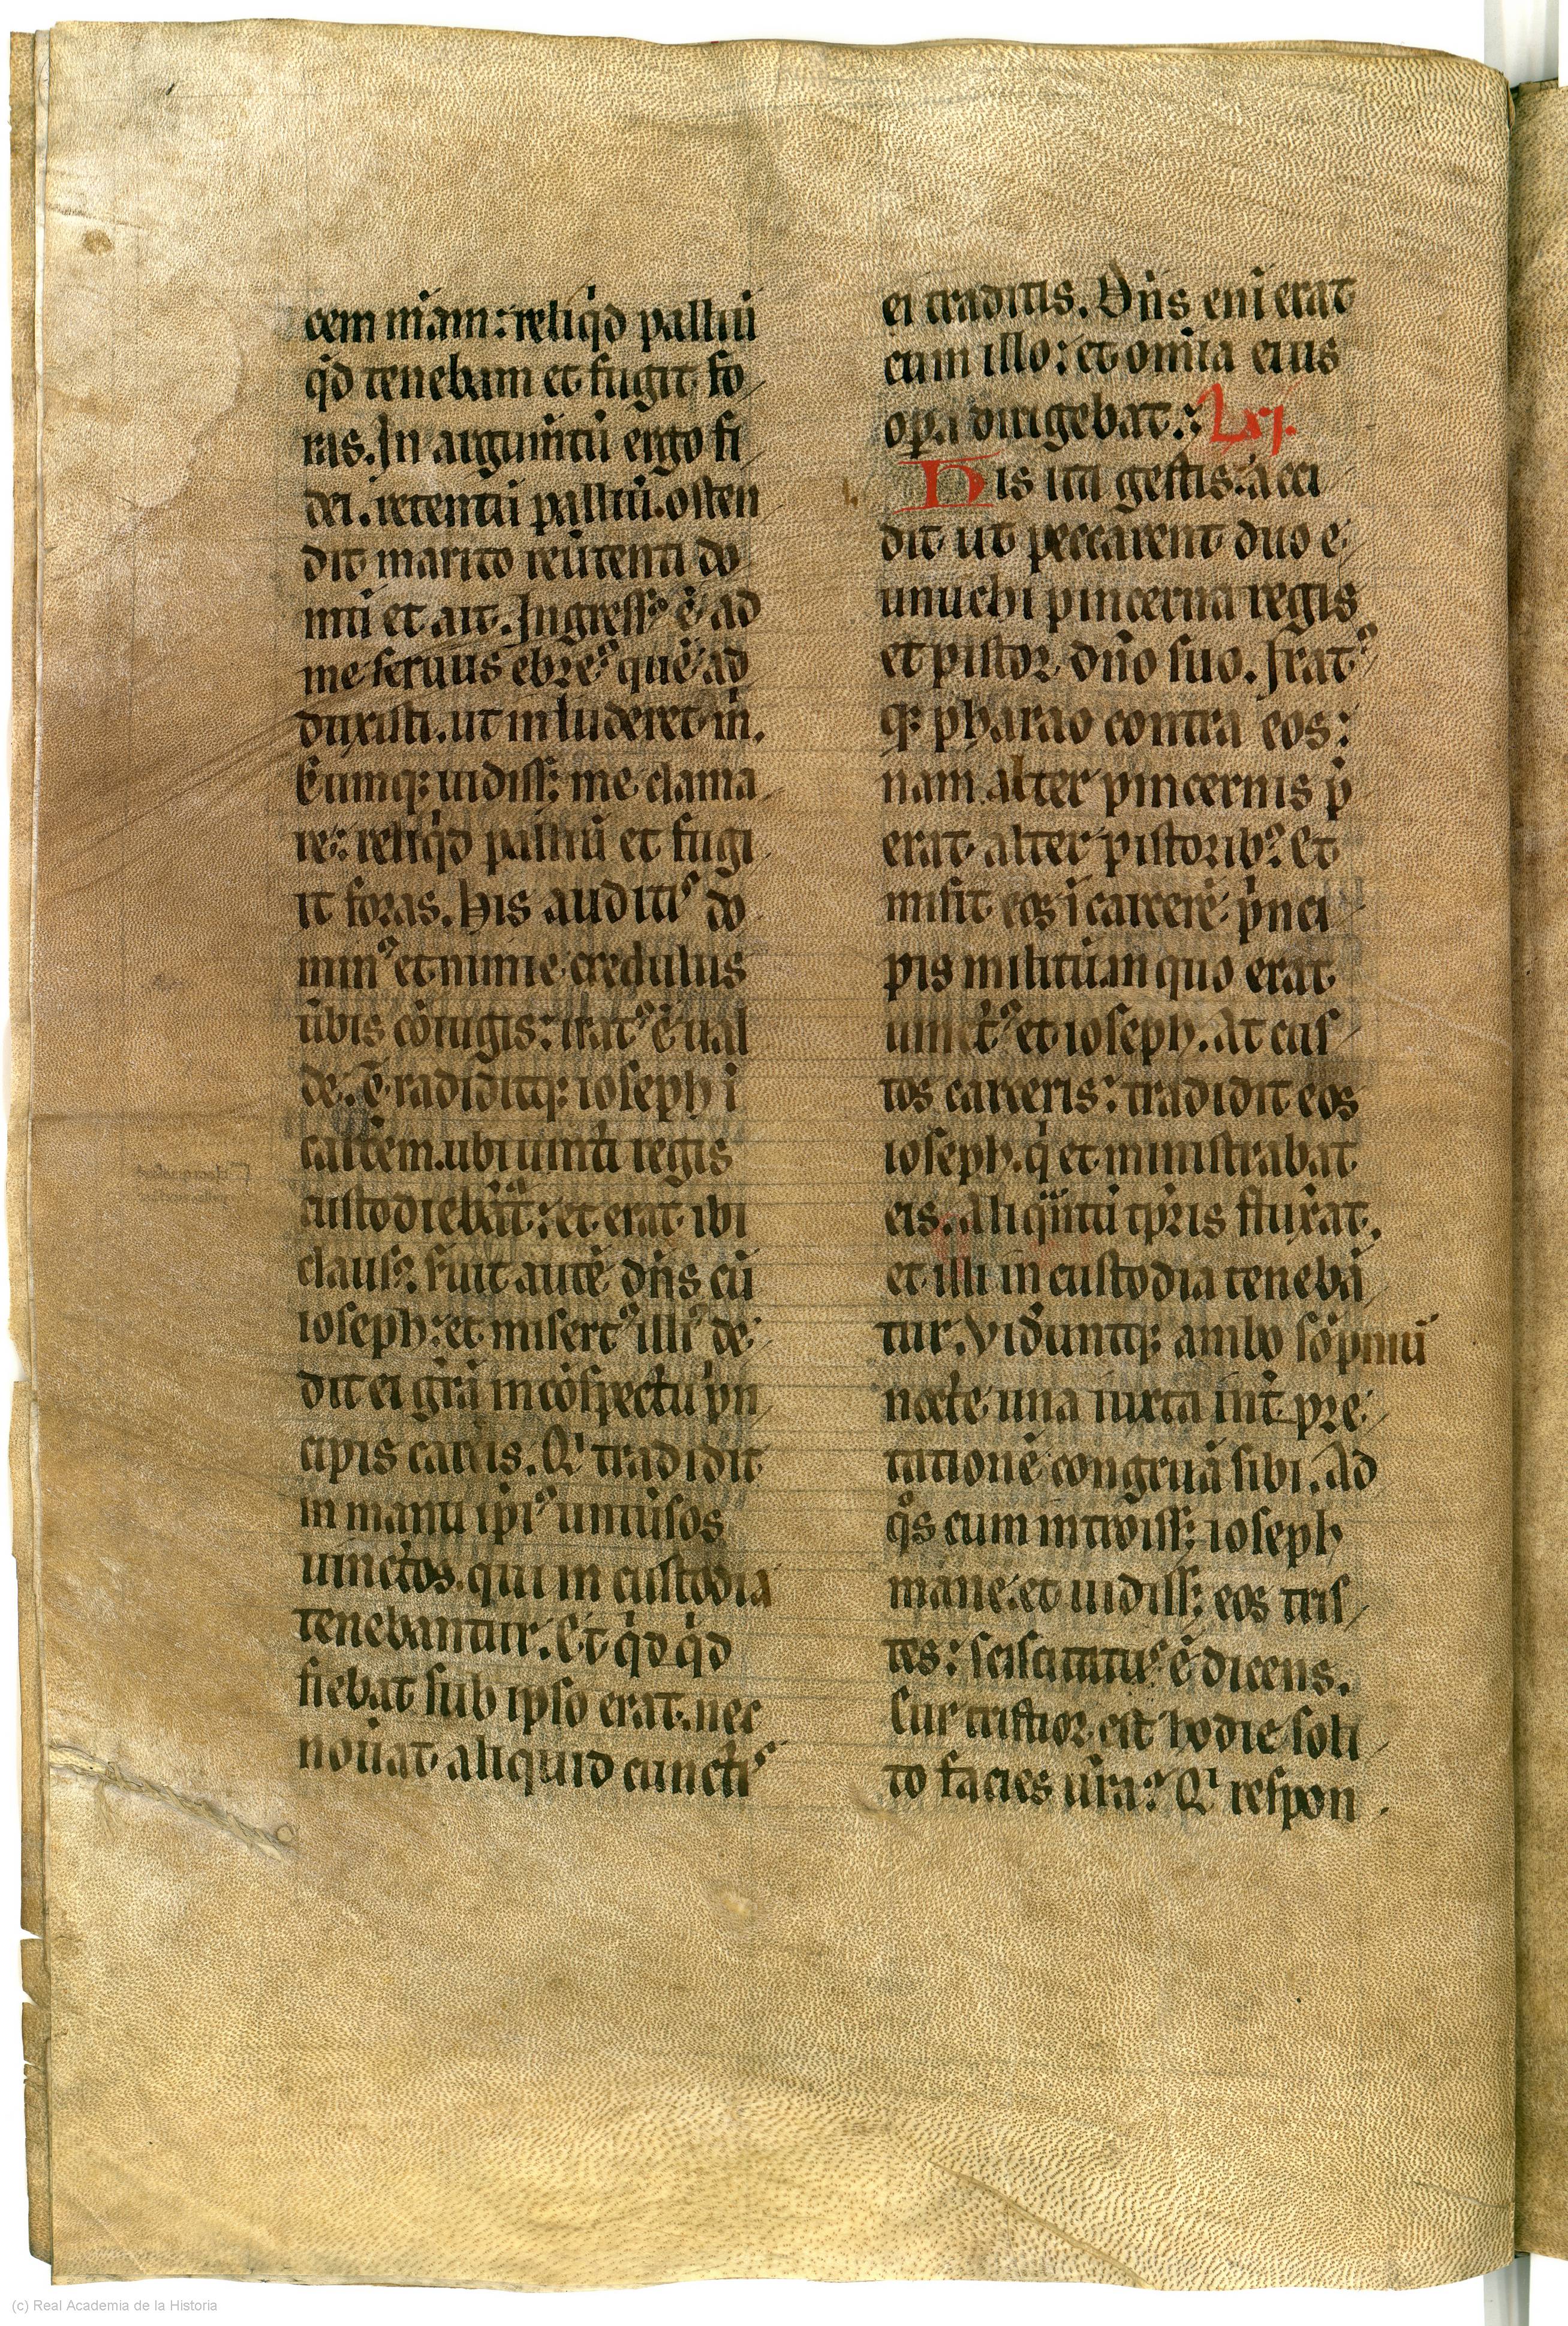 cem m̄am: reliq̇d palliū
q̇d tenebam et fugit fo
ras. In argum̄tū ergo fi
dei. retentū palliū. osten
dit marito reu̅tenti do
mū et ait. Ingressꝰ ē ad
me seruus ebreꝰ quē ad
duxisti. ut inluderet m̄.
Cumq; uidiss; me clama
re: reliq̇d palliū et fugi
it foras. His auditis do
minꝰ et nimie credulus
u̅bis cōiugis: iratꝰ ē ual
de. Tradiditq; ioseph ī
carc̄em. ubi uincti regis
custodieb̄at̄: et erat ibi
clausꝰ. fuit autē dn̄s cū
ioseph: et misertꝰ illiꝰ de
dit ei gr̄am in cōspectu pn
cipis carc̄is. Qi tradidit
in manu ip̄iꝰ uniūsos
uinctos. qui in custodia
tenebantur. Et q̇d q̇d
fiebat sub ipso erat. nec
nou̅at aliquid cunctis
ei traditis. Dn̄s enī erat
cum illo: et om̄ia eius
op̱a dirigebat: Lxj.
His ita gestis: acci
dit ut peccarent duo e
unuchi pincerna regis
et pistor dn̄o suo. Iratꝰ
q; pharao contra eos:
nam alter pincernis p̄
erat alter pistorib; Et
misit eos ī carcerē pͥnci
pis militū. in quo erat
uinctꝰ et ioseph. At cus
tos carceris: tradidit eos
ioseph. qͥ et ministrabat
eis. Aliqͣntū tp̄ris flux̄at.
et illi in custodia tenebā
tur. Vid̄untq; ambo sōpniū
nocte una iuxta int̄ pre
tationē congruā sibi. Ad
qͦs cum introiss; ioseph
mane: et uidiss; eos tris
tes: sciscitatꝰ ē dicens.
Cur tristior est hodie soli
to facies ur̄a? Qi respon
(c) Real Academia de la Historia